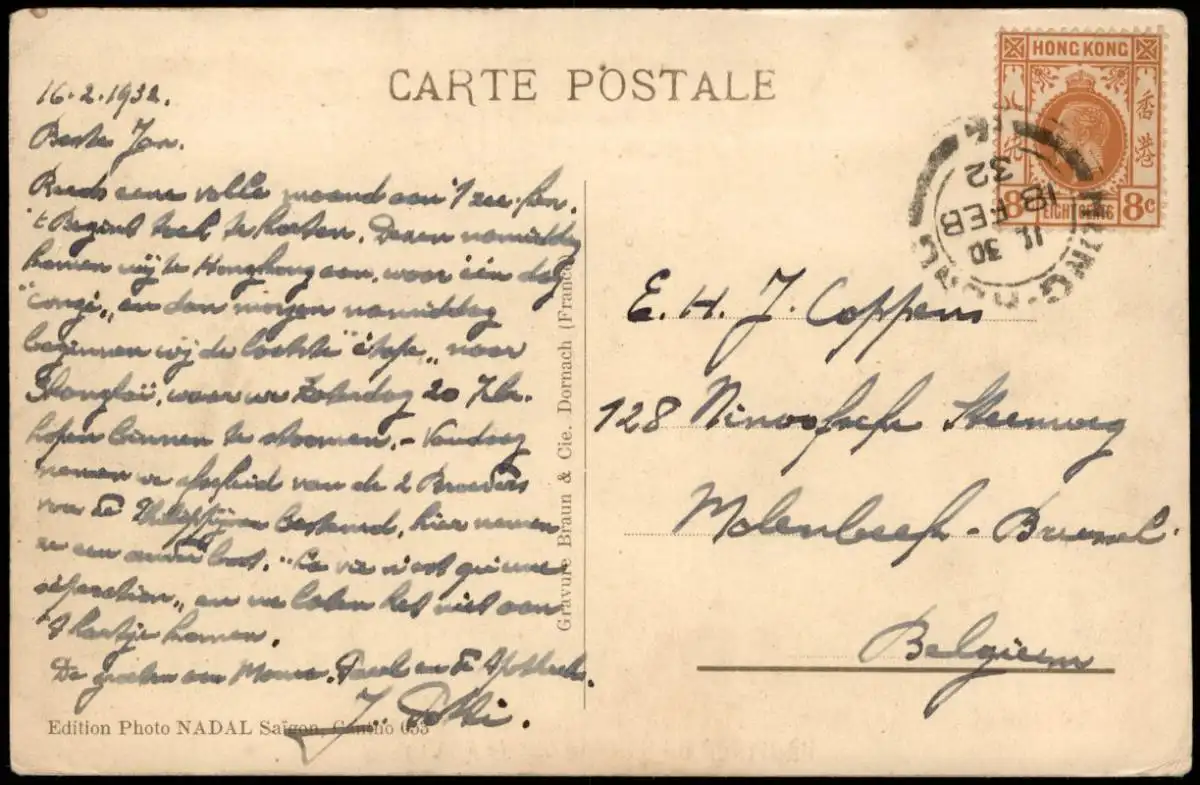 CARTE POSTALE
16-2-1932.
Beste Jan.
Reeds eene volle maand aan 't zee.
't Begint toch te korten. Dezen namiddag
komen wij te Hongkong aan, waar één dag
"congé", en dan morgen namiddag
beginnen wij de laatste "étape", naar
Shanghaï, waar we Zaterdag 20
hopen binnen te stoomen. - Vandaag
nemen we afscheid van de 2 Broeders
voor de Philippijnen bestemd, hier nemen
ze een ander boot. "La vie n'est qu'une
séparation", en we laten het niet aan
't hartje komen.
De groeten aan Moeder, en de
J.
Edition Photo NADAL Saïgon, Cantho 053
Gravure Braun & Cie. Dornach (France)
HONG KONG
香港
8c EIGHT CENTS 8c
11 30
18 FEB
32
E. H. J. Coppens
128 Ninoofsche Steenweg
Molenbeek - Brussel.
Belgium